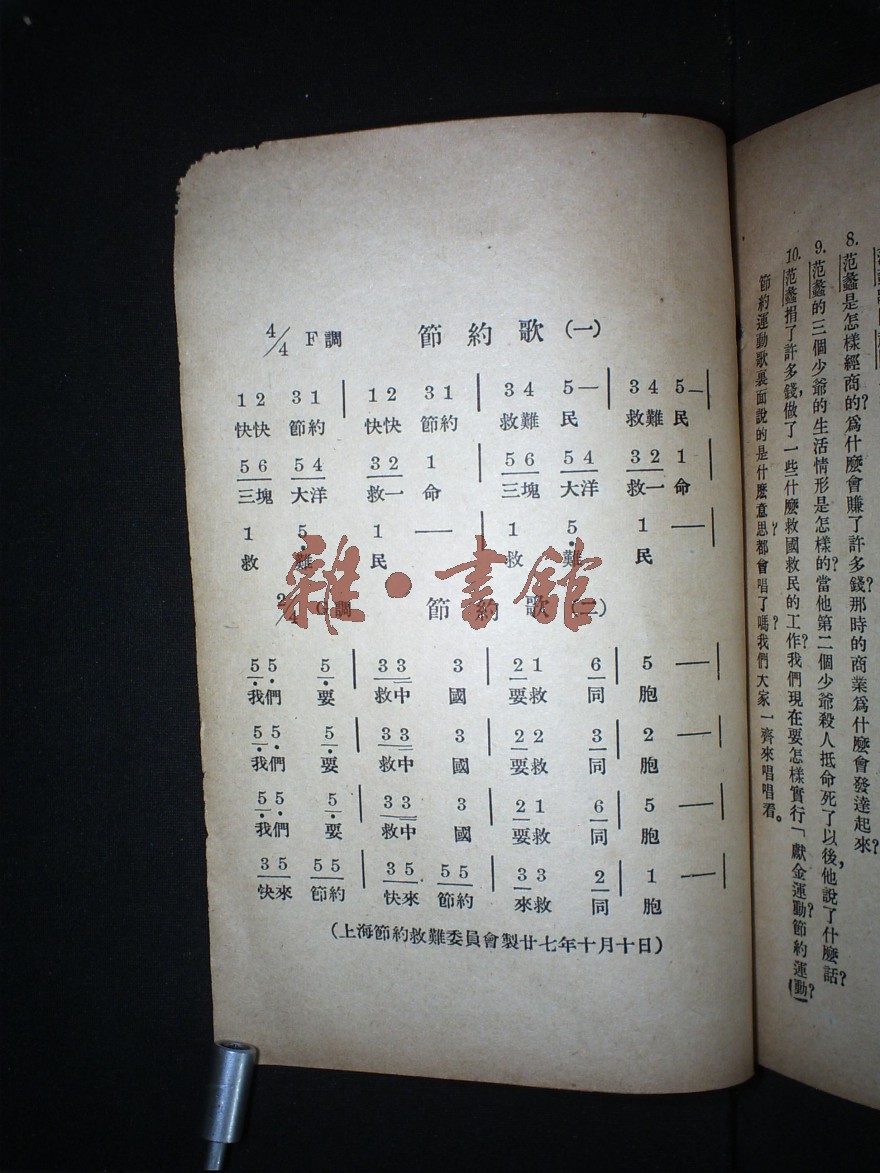 4/4 F調 節約歌(一)
1 2 3 1 | 1 2 3 1 | 3 4 5— | 3 4 5— |
快快 節約 快快 節約 救難 民 救難 民
5 6 5 4 3 2 1 | 5 6 5 4 3 2 1 |
三塊 大洋 救一 命 三塊 大洋 救一 命
1 5 1 — | 1 5 1 — |
救 難 民 救 難 民
2/4 G調 節約歌(二)
5 5 5 | 3 3 3 | 2 1 6 | 5 — |
我們 要 救中 國 要救 同 胞
5 5 5 | 3 3 3 | 2 2 3 | 2 — |
我們 要 救中 國 要救 同 胞
5 5 5 | 3 3 3 | 2 1 6 | 5 — |
我們 要 救中 國 要救 同 胞
3 5 5 5 | 3 5 5 5 | 3 3 2 | 1 — |
快來 節約 快來 節約 來救 同 胞
(上海節約救難委員會製廿七年十月十日)
雜·書館
8. 范蠡是怎樣經商的?爲什麼會賺了許多錢?那時的商業爲什麼會發達起來?
9. 范蠡的三個少爺的生活情形是怎樣的?當他第二個少爺殺人抵命死了以後,他說了什麼話?
10. 范蠡捐了許多錢,做了一些什麼救國救民的工作?我們現在要怎樣實行「獻金運動?節約運動?
節約運動歌裏面說的是什麼意思?都會唱了嗎?我們大家一齊來唱唱看。